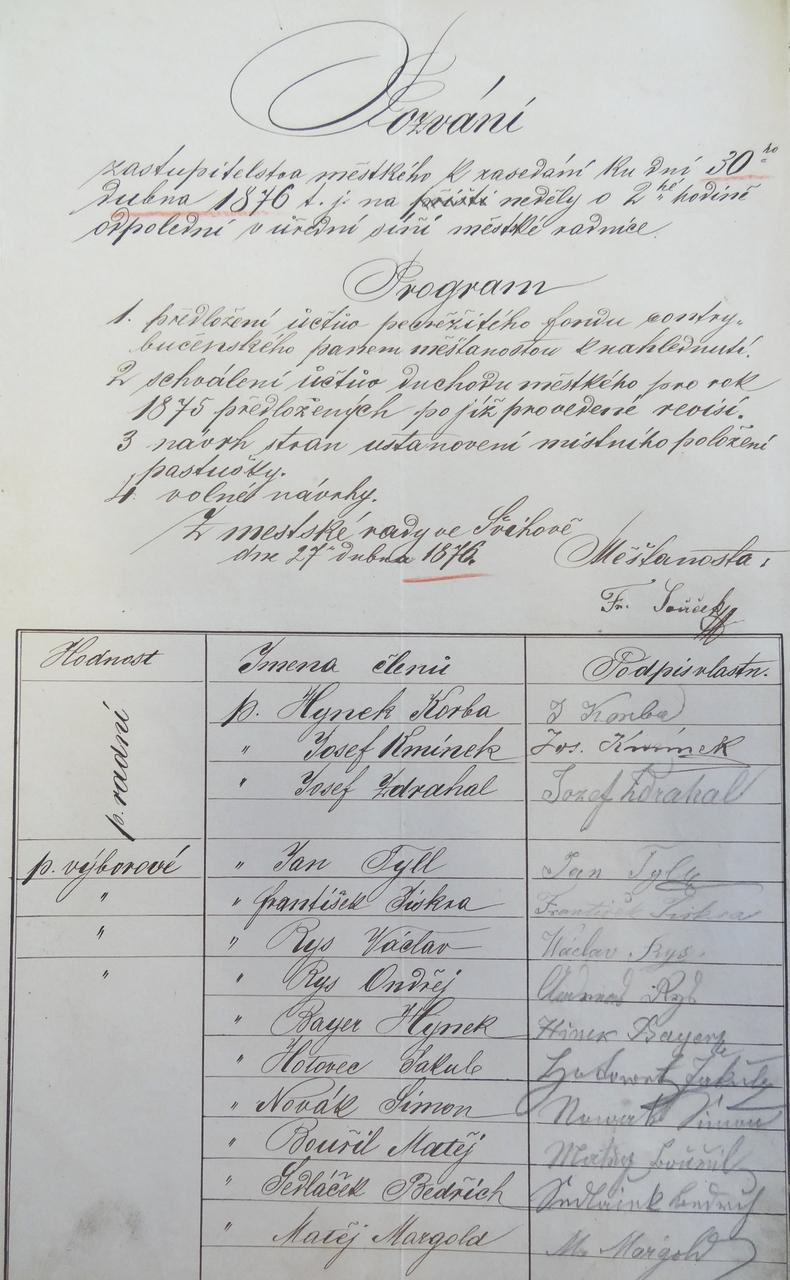 Pozvání
zastupitelstva městkého k zasedání ku dni 30ho
dubna 1876 t. j. na příští neděly o 2hé hodině
odpolední v úřední síni městké radnice.
Program
1. předložení účtův peněžitého fondu contry-
bucenského panem měšťanostou k nahlédnutí.
2 schválení účtův duchodu městkého pro rok
1875 předložených po již provedené revisi.
3 návrh stran ustanovení místního položení
pastuošky.
4. volné návrhy.
Z mestské rady ve Švihově
dne 27ho dubna 1876.
Měšťanosta:
Fr. Souček
Hodnost Imena členů Podpis vlastn.
p. radní
p. Hynek Korba I Korba
" Josef Kmínek Jos. Kmínek
" Josef Zdrahal Jozef Zdrahal
p. výborové " Jan Tyll Jan Tyll
" " František Jiskra František Jiskra
" " Rys Václav Wáclav Rys.
" " Rys Ondřej Rys
" Bayer Hynek Hinek Bayer
" Hotovec Jakub Hotowet Jakub
" Novák Šimon Nowak Šimon
" Bouřil Matěj Matěj Bouřil
" Sedláček Bedřich Sedlaček Bedřich
" Matěj Margold M. Margold